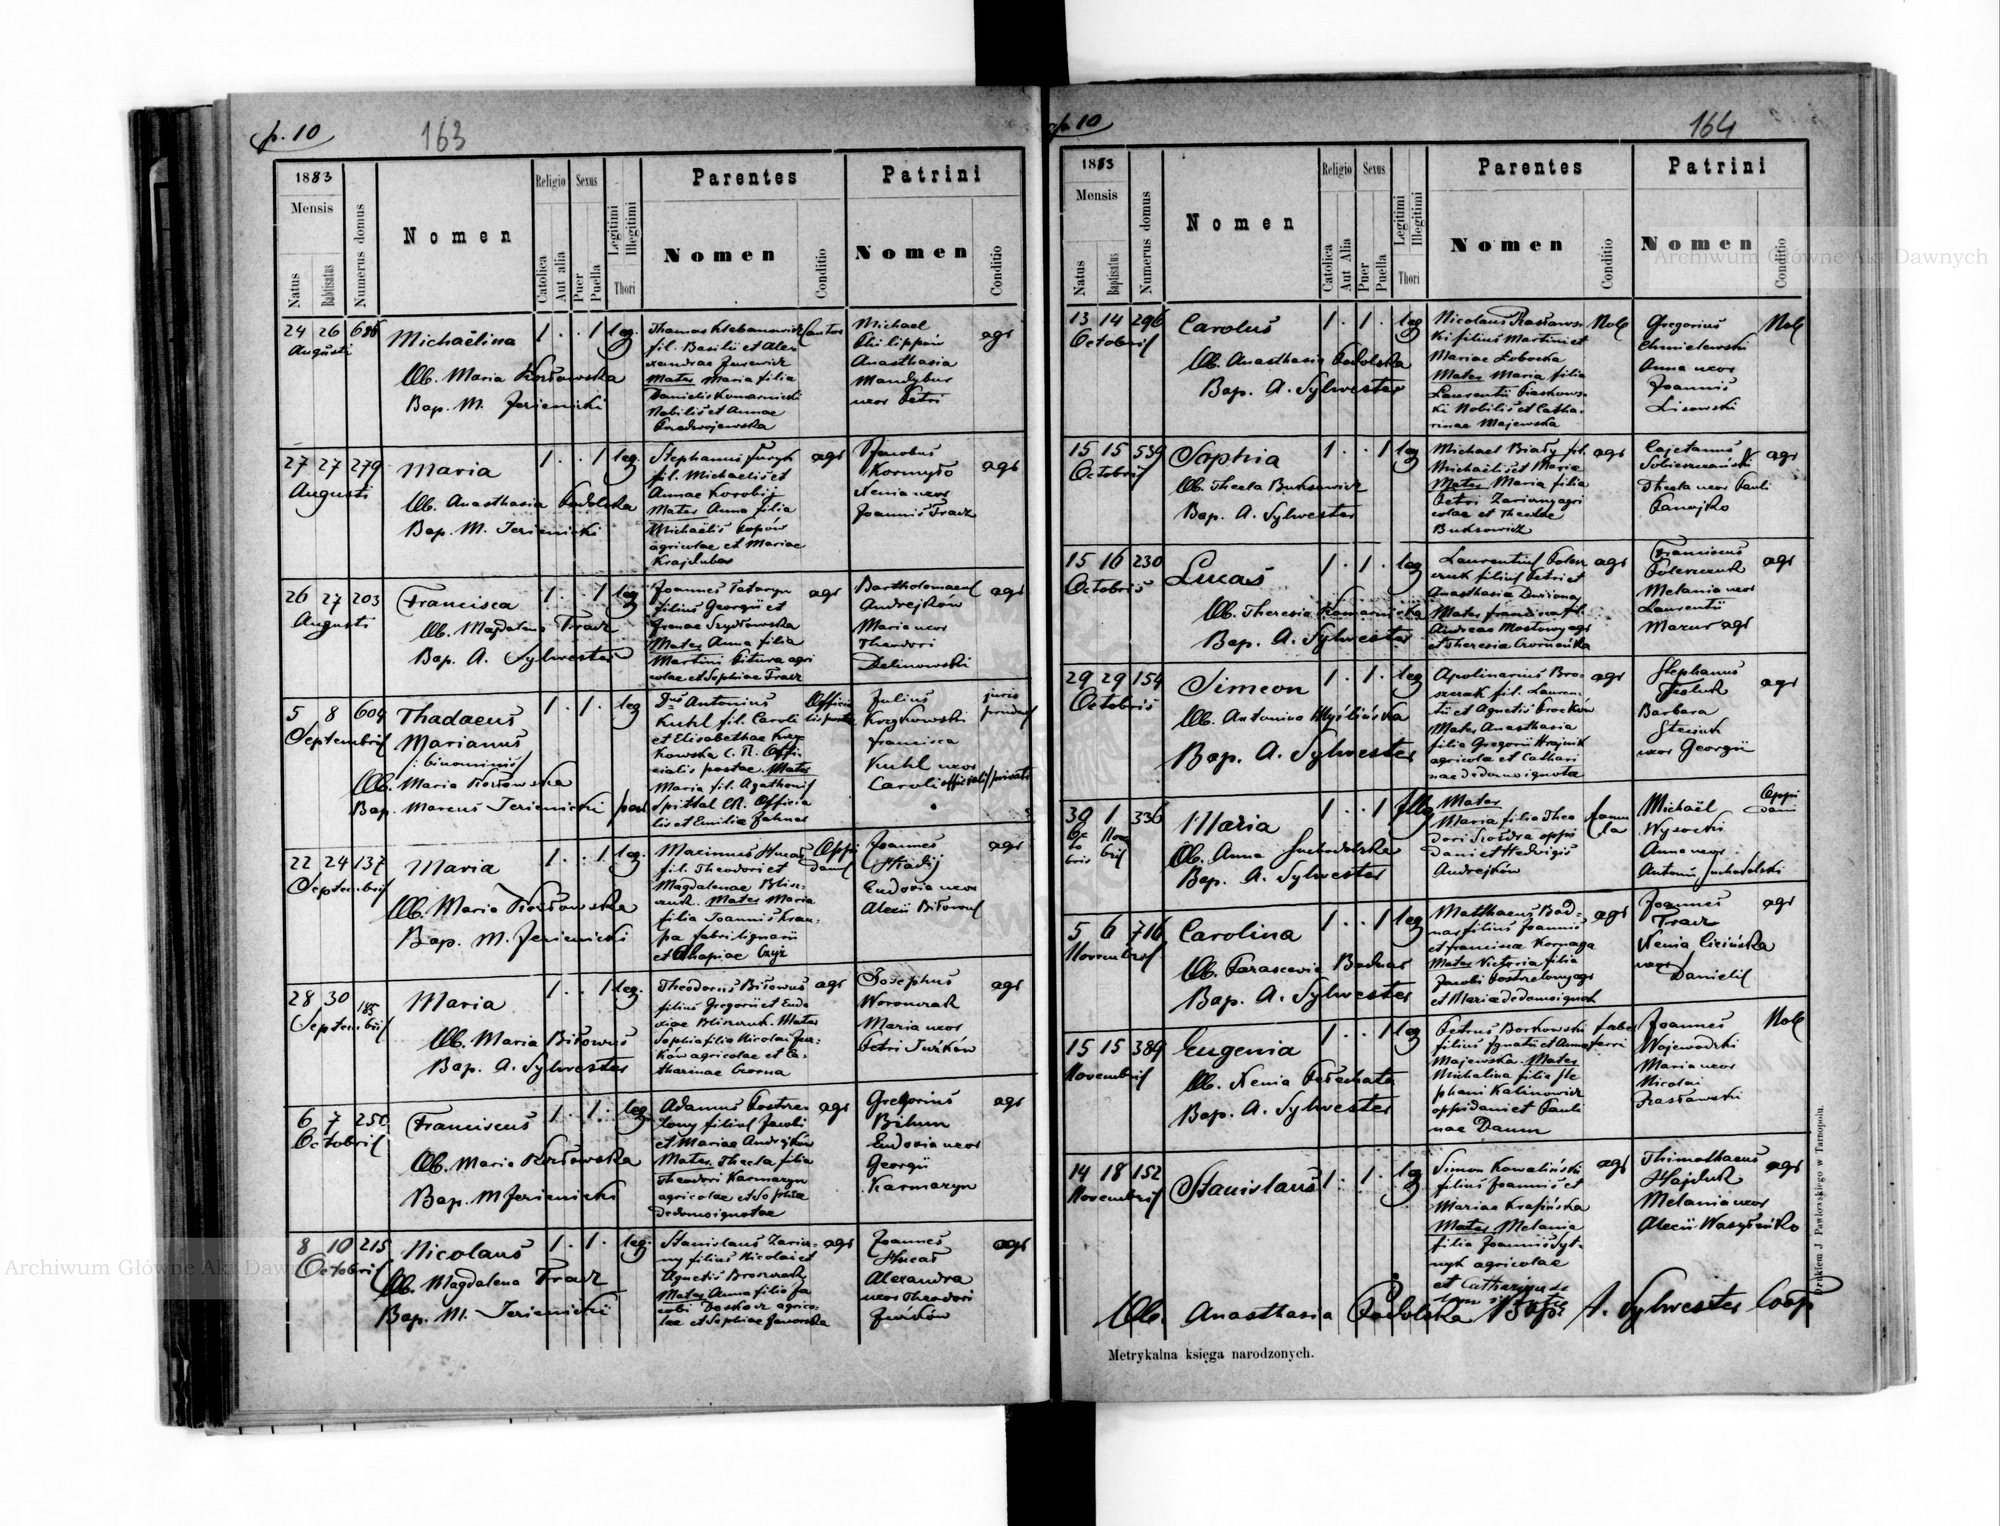 p. 10
163
1883
Mensis
Natus
Babtisatus
Numerus domus
Nomen
Religio
Catolica
Aut alia
Sexus
Puer
Puella
Legitimi
Illegitimi
Thori
Parentes
Nomen
Conditio
Patrini
Nomen
Conditio
24 26
Augusti
Michaëlina
1 . . 1 leg.
Ob. Maria
Bap. M. Jezienicki
fil. Basilii et Alex
Mater Maria filia
Danielis Komarnicki
Nobilis et Annae
Cantor
Michael
Philippiw
Anasthasia
Mandybur
uxor Petri
agr
27 27 279
Augusti
Maria
1 . . 1 leg.
Ob. Anasthasia Podolska
Bap. M. Jezienicki
fil. Michaelis et
Annae Korobij
Mater Anna filia
Michaëlis
agricolae et Mariae
agr
Jacobus
Xenia uxor
Joannis Tracz
agr
26 27 203
Augusti
Francisca
1 . . 1 leg
Ob. Magdalena Tracz
Bap. A. Sylwester
Joannes Tataryn
filius Georgii et
Irenae Szydłowska
Mater Anna filia
Martini Pitura agri
colae et Sophiae Tracz
agr
Bartholomaeus
Andrejków
Maria uxor
Theodori
Delinowski
agr
5 8 604
Septembris
Thadaeus
Marianus
/: binominus/
Ob. Maria Kozłowska
Bap. Marcus Jezienicki
1 . 1 . leg
Dnus Antonius
Kuhl fil. Caroli
et Elisabethae Krzy
kowska C. R. Offi
cialis postae. Mater
Maria fil. Agathonis
Spittal CR. Officia
lis et Emiliae
Julius
Krzykowski
Francisca
Kuhl uxor
Caroli officialis privati
juris
22 24 137
Septembris
Maria
1 . . 1 leg.
Ob. Maria Kozłowska
Bap. M. Jezienicki
Maximus Hucał
fil. Theodori et
Magdalenae Blisz-
czuk. Mater Maria
filia Joannis Krau-
pa fabri lignarii
et Czyż
Oppi
danus
Joannes
Eudoxia uxor
Alexii Biłowus
agr
28 30 185
Septembris
Maria
1 . . 1 leg.
Ob. Maria Biłowus
Bap. A. Sylwester
Theodorus Biłowus
filius Gregorii et Eudo
xiae Bliszczuk. Mater
Sophia filia Nicolai Jur-
ków agricolae et Ca-
tharinae Czorna
agr
Josephus
Woronczak
Maria uxor
Petri Jurków
agr
6 7 250
Octobris
Franciscus
1 . 1 . leg.
Ob. Maria Kozłowska
Bap. M Jezienicki
Adamus Postrze-
lony filius Jacobi
et Mariae Andrejków
Mater Thecla filia
Theodori Karmazyn
agricolae et Sophiae
de domo ignotae
agr
Gregorius
Bihun
Eudoxia uxor
Georgii
Karmazyn
agr
8 10 215
Octobris
Nicolaus
1 . 1 . leg.
Ob. Magdalena Tracz
Bap. M. Jezienicki
Stanislaus Zaricz-
ny filius Nicolai et
Agnetis Broszczak
Mater Anna filia Ja
cobi Doskocz agrico-
lae et Sophiae Jaworska
agr
Joannes
Hucał
Alexandra
uxor Theodori
Jurków
agr
p. 10
164
1883
Mensis
Natus
Baptisatus
Numerus domus
Nomen
Religio
Catolica
Aut Alia
Sexus
Puer
Puella
Legitimi
Illegitimi
Thori
Parentes
Nomen
Conditio
Patrini
Nomen
Conditio
13 14 296
Octobris
Carolus
1 . 1 . leg
Ob. Anasthasia Podolska
Bap. A. Sylwester
Nicolaus Zasławs-
ki filius Martini et
Mariae Łobocka
Mater Maria filia
Laurentii Piaskows-
ki Nobilis et Catha-
rinae Majewska
Nob
Gregorius
Chmielewski
Anna uxor
Joannis
Lisowski
Nob
15 15 539
Octobris
Sophia
1 . . 1 leg
Ob. Thecla Buksowicz
Bap. A. Sylwester
Michael Biały fil.
Michaëlis et Maria
Mater Maria filia
Petri Zariczny agri
colae et Theclae
Buksowicz
agr
Cajetanus
Thecla uxor Pauli
Panojko
agr
15 16 230
Octobris
Lucas
1 . 1 . leg
Ob. Theresia Komarnicka
Bap. A. Sylwester
Laurentius Polesz
czuk filius Petri et
Anasthasia
Mater Francisca fil.
Andreae Mostowy agr
et Theresia
agr
Franciscus
Poleszczuk
Melania uxor
Laurentii
Mazur agr
agr
29 29 154
Octobris
Simeon
1 . 1 . leg
Ob. Antonina Myślińska
Bap. A. Sylwester
Apolinarius Bro-
szczak fil. Lauren-
tii et Agnetis
Mater Anasthasia
filia Gregorii Hrajnik
agricola et Cathari
nae de domo ignota
agr
Stephanus
Barbara
uxor Georgii
agr
30 1 336
Oc
to
bris
Nov
bris
Maria
1 . . 1 Illeg
Ob. Anna Suchodolska
Bap. A. Sylwester
Mater
Maria filia Theo
dori oppi
dani et Hedvigis
Andrejków
famu
la
Michaël
Wysocki
Anna uxor
Antonii Suchodolski
Oppi
dani
5 6 716
Novembris
Carolina
1 . . 1 leg
Ob. Parascevia Bodnar
Bap. A. Sylwester
Matthaeus Bod-
nar filius Joannis
et Francisca Kornaga
Mater Victoria filia
Jacobi Postrzelony agr
et Maria de domo ignot
agr
Joannes
Tracz
Xenia Cicińska
uxor
Danielis
agr
15 15 389
Novembris
Eugenia
1 . . 1 leg
Ob. Xenia Pełechata
Bap. A. Sylwester
Petrus Borkowski
filius Ignatii et Anna
Majewska. Mater
Michalina filia Ste
phani Kalinowicz
oppidani et Pauli
nae Daum
faber
ferri
Joannes
Wojewodzki
Maria uxor
Nicolai
Zasławski
Nob
14 18 152
Novembris
Stanislaus
1 . 1 . leg
Simon Kowaliński
filius Joannis et
Mariae Krasińska
Mater Melania
filia Joannis Syt-
nyk agricolae
et Catharinae de
agr
Thimothaeus
Hajduk
Melania uxor
Alexii Wasyleńko
agr
Ob. Anasthasia Podolska Bap: A. Sylwester Coop
Metrykalna księga narodzonych.
Drukiem J. Pawłowskiego w Tarnopolu.
Archiwum Główne Akt Dawnych
Archiwum Główne Akt Dawnych